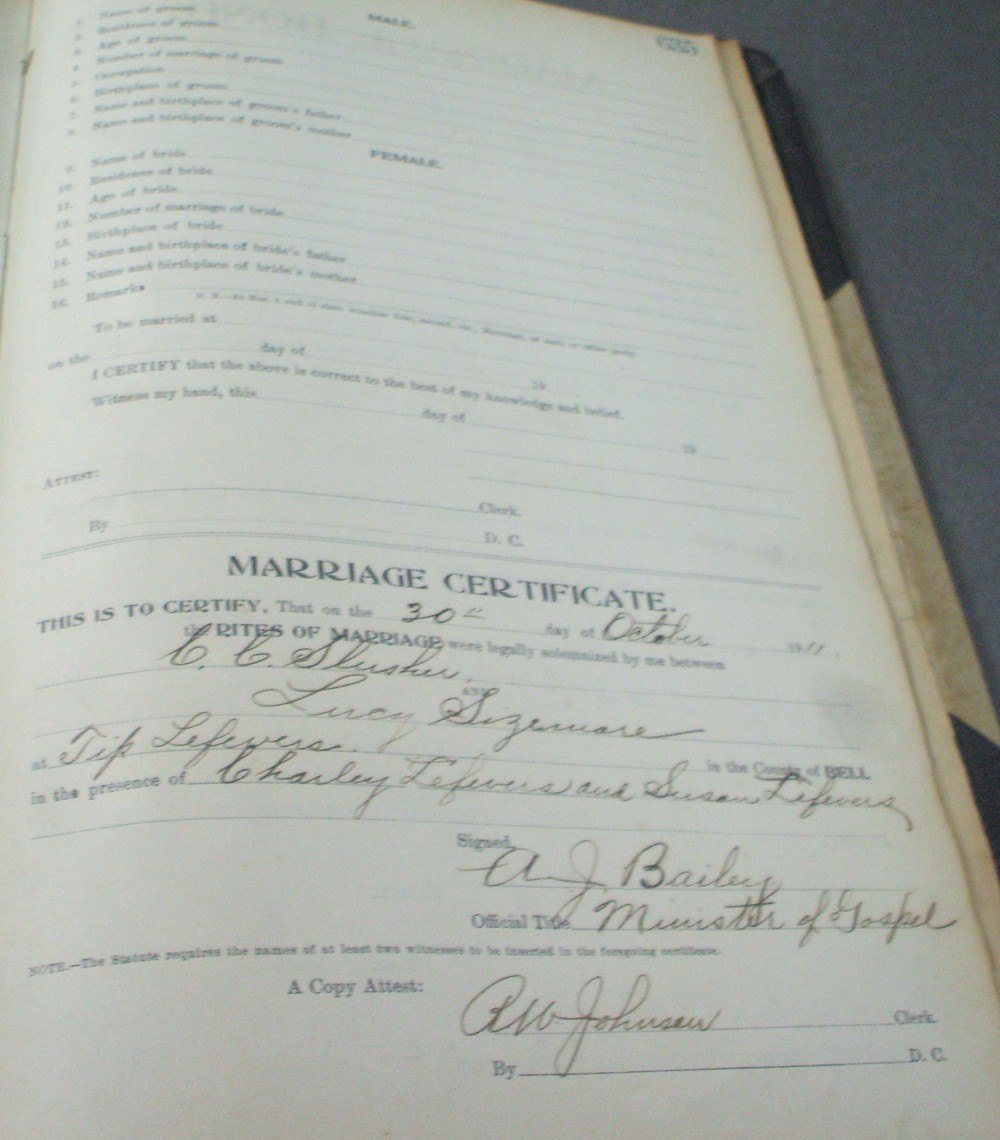 MALE.
1. Name of groom
2. Residence of groom
3. Age of groom
4. Number of marriage of groom
5. Occupation
6. Birthplace of groom
7. Name and birthplace of groom's father
8. Name and birthplace of groom's mother
FEMALE.
9. Name of bride
10. Residence of bride
11. Age of bride
12. Number of marriage of bride
13. Birthplace of bride
14. Name and birthplace of bride's father
15. Name and birthplace of bride's mother
16. Remarks
To be married at
on the day of 19
I CERTIFY that the above is correct to the best of my knowledge and belief.
Witness my hand, this day of 19
ATTEST:
Clerk.
By D. C.
MARRIAGE CERTIFICATE.
THIS IS TO CERTIFY, That on the 30" day of October 1911.
the RITES OF MARRIAGE were legally solemnized by me between
C. C. Slusher,
AND
Lucy Sizemore
at Tip Lefevers. in the County of BELL
in the presence of Charley Lefevers and Susan Lefevers
Signed,
A J Bailey
Official Title Minister of Gospel
NOTE.—The Statute requires the names of at least two witnesses to be inserted in the foregoing certificate.
A Copy Attest:
RW Johnson Clerk.
By D. C.